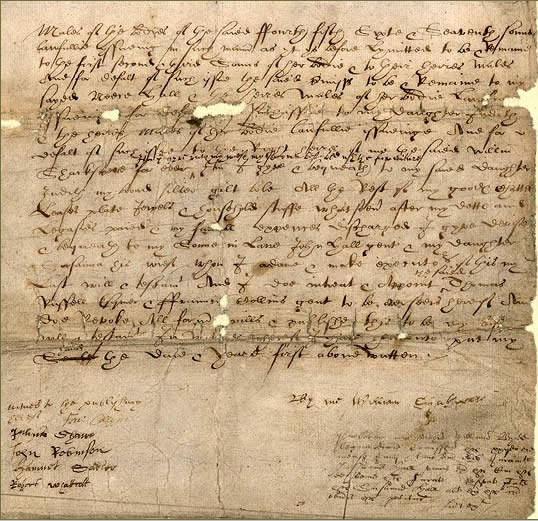 Males of the bodies of the saied ffourth fifth Sixte & Seaventh sonnes
lawfullie yssueing in such manner as yt ys before Lymitted to be & Remaine
to the first second & third Sonns of her bodie & to their heires Males
And for defalt of such issue the said premisses to be & Remaine to my
sayed Neece Hall & the heires Males of her bodie Lawfullie
yssueing for defalt of such issue to my daughter Judith
& the heires Males of her bodie lawfullie yssueinge And for
defalt of such issue to the Right heires of me the saied William
Item I gyve unto my wief my second best bed with the furniture
Shackspere for ever Item I gyve & bequeath to my saied daughter
Judith my broad silver gilt bole All the Rest of my goodes Chattels
Leases plate Jewels & household stuffe whatsoever after my dettes and
Legasies paied & my funerall expences discharged I gyve devise
& bequeath to my Sonne in Lawe John Hall gent & my daughter
Susanna his wief whom I ordaine & make executors of this my
Last will & testament And I doe intreat & Appoint Thomas
Russell Esquier & ffrauncis Collins gent to be overseers hereof And
doe Revoke All former wills & publishe this to be my last
will & testament In witnes whereof I have hereunto put my
hand
Seale the Daie & Yeare first above written
witnes to the publishing
hereof Fra: Collyns
Julius Shawe
John Robinson
Hamnet Sadler
Robert Whattcott
By me William Shakspeare